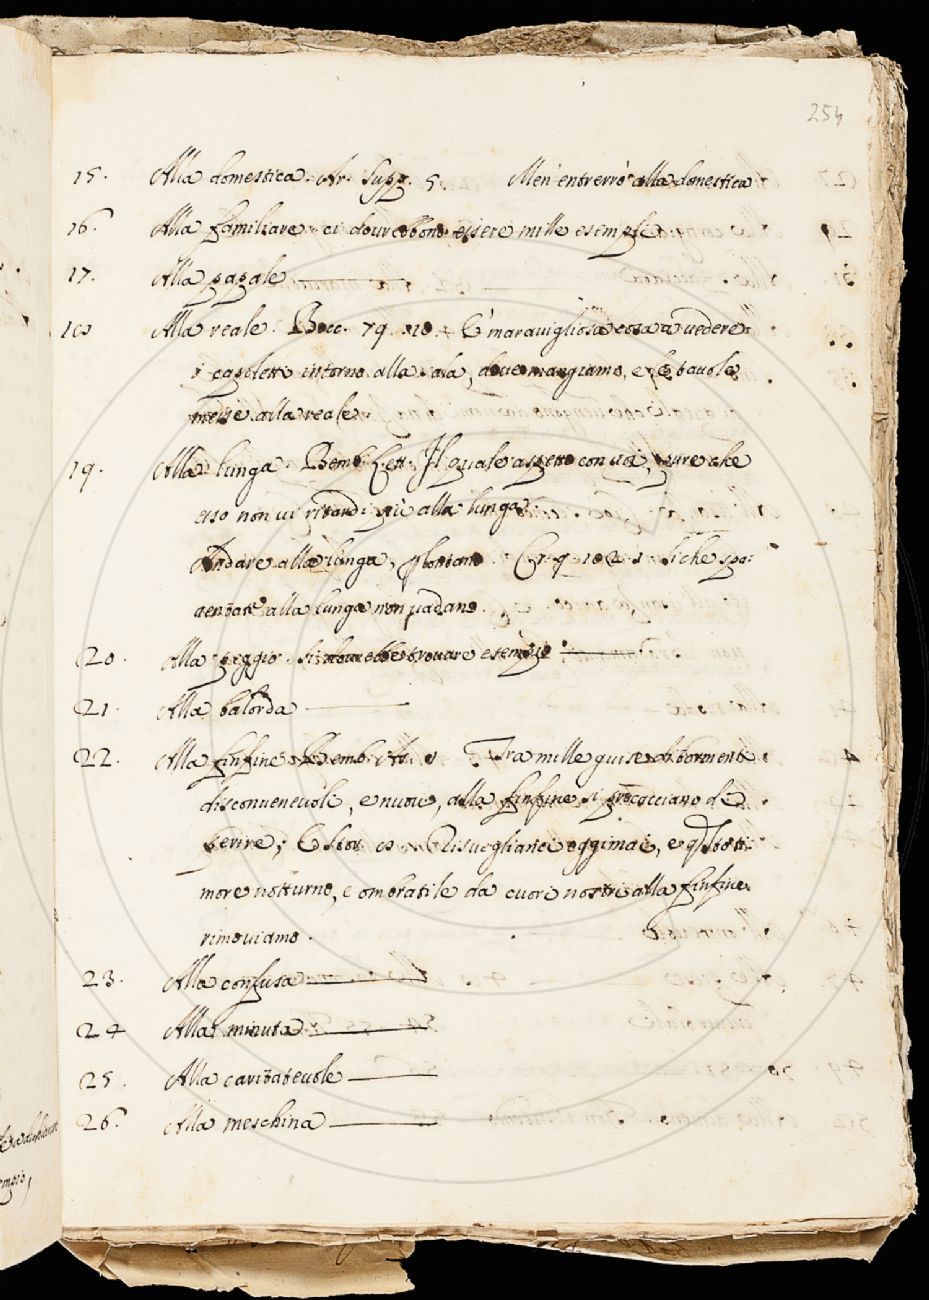 254
15. Alla domestica. Ar. Supp. 5. Men' entrerrò alla domestica
16. Alla familiare. ci dourebbono essere mille esempli.
17. Alla papale
18 Alla reale. Bocc. 79. È maravigliosa cosa a vedere
i capoletti intorno alla sala, dove mangiamo, e le tavole
messe alla reale.
19. Alla lunga. Bemb. Lett. Il quale aspetto con voi, pure che
esso non vi ritardi più alla lunga.
Andare alla lunga, lontano. Cr. 9. 102. 1. si che spa-
ventate alla lunga non vadano.
20. Alla peggio. si dourebbe trovare esempio
21. Alla balorda
22. Alla finfine Bemb. As. Tra mille guise di tormenti
disconvenevole, e nuovo, alla finfine si procacciano di
perire; E Risvegliarci oggimai, e
more notturno, e ombratile da cuori nostri alla finfine
rimoviamo.
23. Alla confusa
24 Alla minuta
25. Alla caritatevole
26. Alla meschina